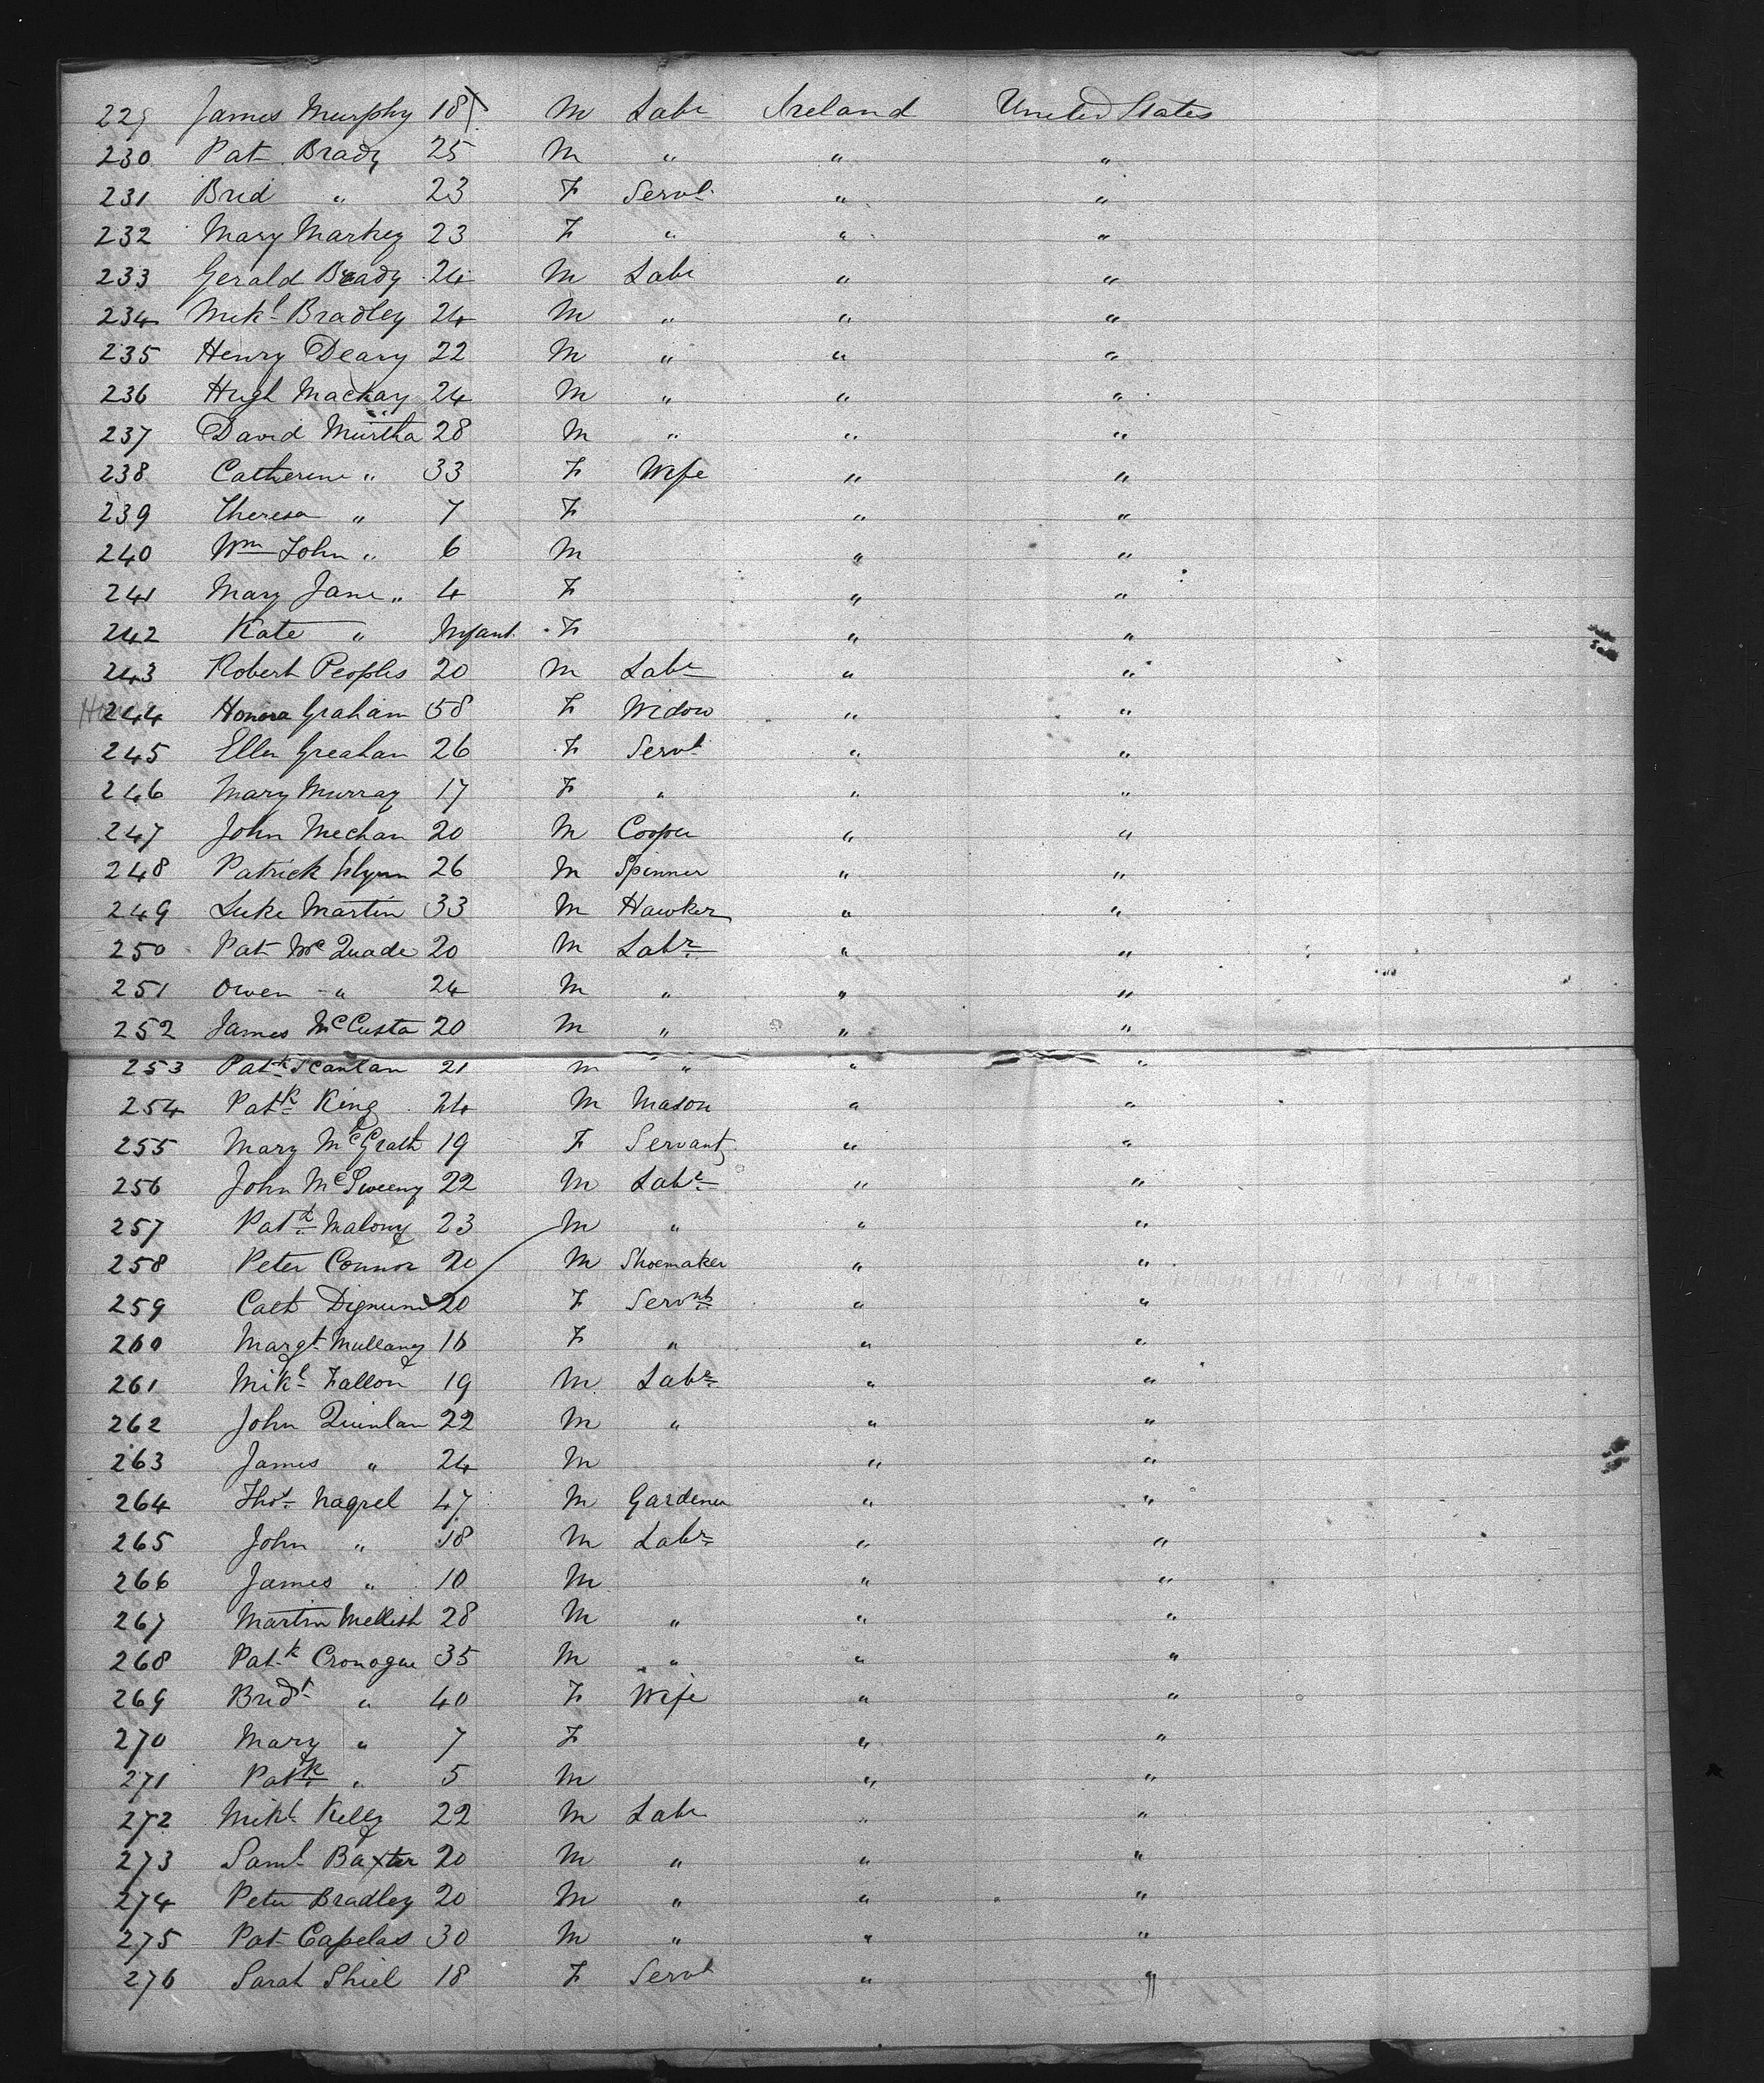 229 James Murphy 18 M Labr Ireland United States
230 Pat Brady 25 M " " "
231 Brid " 23 F Servt " "
232 Mary Markey 23 F " " "
233 Gerald Brady 24 M Labr " "
234 Mikl Bradley 24 M " " "
235 Henry Deary 22 M " " "
236 Hugh Mackay 24 M " " "
237 David Murtha 28 M " " "
238 Catherine " 33 F Wife " "
239 Theresa " 7 F " "
240 Wm John " 6 M " "
241 Mary Jane " 4 F " "
242 Kate " Infant F " "
243 Robert Peoples 20 M Labr " "
244 Honora Graham 58 F Widow " "
245 Ellen Greahan 26 F Servt " "
246 Mary Murray 17 F " " "
247 John Mechan 20 M Cooper " "
248 Patrick Flynn 26 M Spinner " "
249 Luke Martin 33 M Hawker " "
250 Pat McQuade 20 M Labr " "
251 Owen " 24 M " " "
252 James McCusta 20 M " " "
253 Patk Scanlan 21 M " " "
254 Patk King 24 M Mason " "
255 Mary McGrath 19 F Servant " "
256 John McSweeny 22 M Labr " "
257 Patk Malony 23 M " " "
258 Peter Connor 20 M Shoemaker " "
259 Cath Dignum 20 F Servnt " "
260 Margt Mullany 16 F " " "
261 Mikl Fallon 19 M Labr " "
262 John Quinlan 22 M " " "
263 James " 24 M " "
264 Thos Nagrel 47 M Gardener " "
265 John " 18 M Labr " "
266 James " 10 M " "
267 Martin Mellish 28 M " " "
268 Patk Cronogue 35 M " " "
269 Bridt " 40 F Wife " "
270 Mary " 7 F " "
271 Patk " 5 M " "
272 Mikl Kelly 22 M Labr " "
273 Saml Baxter 20 M " " "
274 Peter Bradley 20 M " " "
275 Pat Capelas 30 M " " "
276 Sarah Shiel 18 F Servt " "